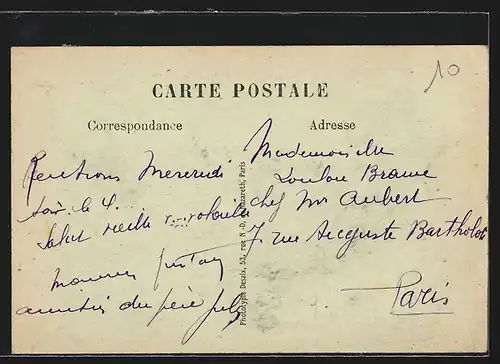 10
CARTE POSTALE
Correspondance
Adresse
Rentrons Mercredi
soir le 4.
Salut vieille
amitiés du père
Phototypie Desaix, 53, rue N.-D. Nazareth, Paris
Mademoiselle
Loulou Brame
chez Mr Aubert
7, rue Auguste Bartholdi
Paris